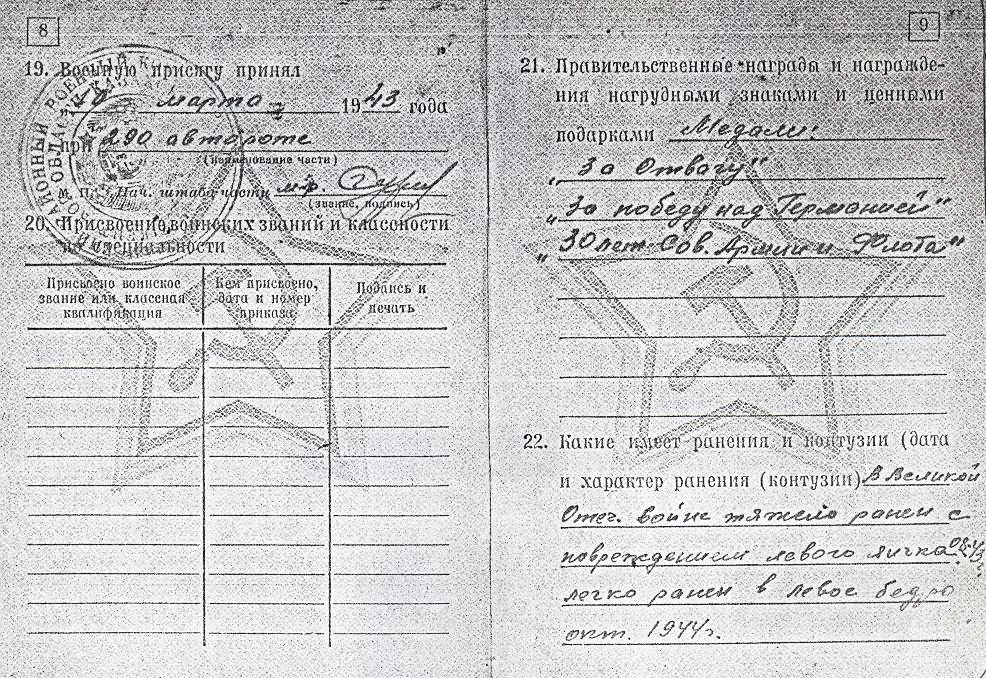 8
19. Военную присягу принял
марта 1943 года
при 290 автороте
(наименование части)
М. П. Нач. штаба части м-р.
(звание, подпись)
20. Присвоение воинских званий и классности
по специальности
Присвоено воинское звание или классная квалификация
Кем присвоено, дата и номер приказа
Подпись и печать
РАЙОННЫЙ ВОЕННЫЙ
9
21. Правительственные награды и награжде-
ния нагрудными знаками и ценными
подарками Медали:
„За Отвагу"
„За победу над Германией"
„30 лет Сов. Армии и Флота"
22. Какие имеет ранения и контузии (дата
и характер ранения (контузии) В Великой
Отеч. войне тяжело ранен с
повреждением левого яичка
легко ранен в левое бедро
окт. 1944г.